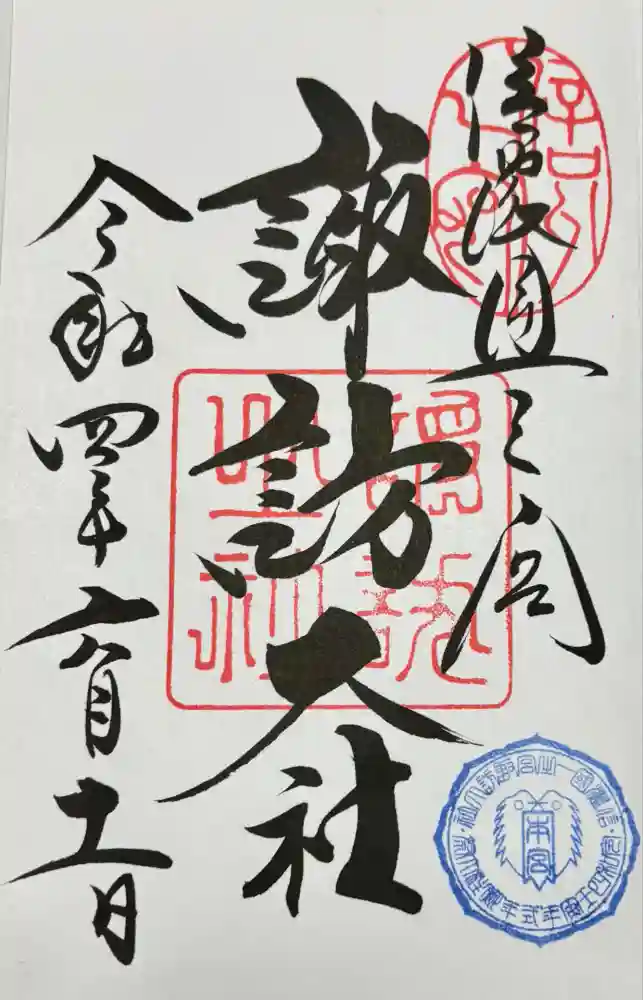 信濃國一之宮
諏訪大社
令和四年六月十一日
諏訪大社
信濃國一之宮諏訪大社
令和四壬寅年式年御柱大祭
本宮